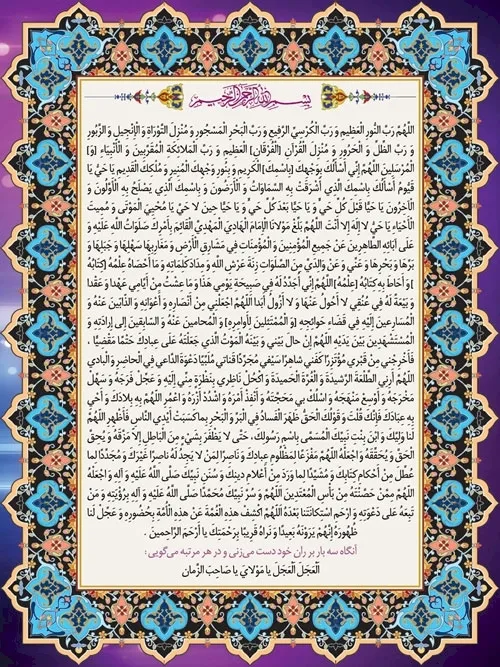 بِسْمِ اللهِ الرَّحْمنِ الرَّحیمِ
اَللّٰهُمَّ رَبَّ النُّورِ الْعَظیمِ وَ رَبَّ الْکُرْسِیِّ الرَّفیعِ وَ رَبَّ الْبَحْرِ الْمَسْجُورِ وَ مُنْزِلَ التَّوْراةِ وَ الْإِنْجیلِ وَ الزَّبُورِ
وَ رَبَّ الظِّلِّ وَ الْحَرُورِ وَ مُنْزِلَ الْقُرْآنِ [الْفُرْقانِ] الْعَظیمِ وَ رَبَّ الْمَلائِکَةِ الْمُقَرَّبینَ وَ الْأَنْبِیاءِ [وَ]
الْمُرْسَلینَ اللّٰهُمَّ إِنّی أَسْأَلُکَ بِوَجْهِکَ [بِاسْمِکَ] الْکَریمِ وَ بِنُورِ وَجْهِکَ الْمُنیرِ وَ مُلْکِکَ الْقَدیمِ یا حَیُّ یا
قَیُّومُ أَسْأَلُکَ بِاسْمِکَ الَّذی أَشْرَقَتْ بِهِ السَّماواتُ وَ الْأَرَضُونَ وَ بِاسْمِکَ الَّذی یَصْلَحُ بِهِ الْأَوَّلُونَ وَ
الْآخِرُونَ یا حَیّاً قَبْلَ کُلِّ حَیٍّ وَ یا حَیّاً بَعْدَ کُلِّ حَیٍّ وَ یا حَیّاً حینَ لا حَیَّ یا مُحْیِیَ الْمَوْتی وَ مُمیتَ
الْأَحْیاءِ یا حَیُّ لا إِلٰهَ إِلّا أَنْتَ اللّٰهُمَّ بَلِّغْ مَوْلانَا الْإِمامَ الْهادِیَ الْمَهْدِیَّ الْقائِمَ بِأَمْرِکَ صَلَواتُ اللهِ عَلَیْهِ وَ
عَلی آبائِهِ الطّاهِرینَ عَنْ جَمیعِ الْمُؤْمِنینَ وَ الْمُؤْمِناتِ فی مَشارِقِ الْأَرْضِ وَ مَغارِبِها سَهْلِها وَ جَبَلِها وَ
بَرِّها وَ بَحْرِها وَ عَنّی وَ عَنْ والِدَیَّ مِنَ الصَّلَواتِ زِنَةَ عَرْشِ اللهِ وَ مِدادَ کَلِماتِهِ وَ ما أَحْصاهُ عِلْمُهُ [کِتابُهُ
] وَ أَحاطَ بِهِ کِتابُهُ [عِلْمُهُ] اللّٰهُمَّ إِنّی أُجَدِّدُ لَهُ فی صَبیحَةِ یَوْمی هٰذا وَ ما عِشْتُ مِنْ أَیّامی عَهْداً وَ عَقْداً
وَ بَیْعَةً لَهُ فی عُنُقی لا أَحُولُ عَنْها وَ لا أَزُولُ أَبَداً اللّٰهُمَّ اجْعَلْنی مِنْ أَنْصارِهِ وَ أَعْوانِهِ وَ الذّابّینَ عَنْهُ وَ
الْمُسارِعینَ إِلَیْهِ فی قَضاءِ حَوائِجِهِ [وَ الْمُمْتَثِلینَ لِأَوامِرِهِ] وَ الْمُحامینَ عَنْهُ وَ السّابِقینَ إِلی إِرادَتِهِ وَ
الْمُسْتَشْهَدینَ بَیْنَ یَدَیْهِ اللّٰهُمَّ إِنْ حالَ بَیْنی وَ بَیْنَهُ الْمَوْتُ الَّذی جَعَلْتَهُ عَلی عِبادِکَ حَتْماً مَقْضِیّاً ،
فَأَخْرِجْنی مِنْ قَبْری مُؤْتَزِراً کَفَنی شاهِراً سَیْفی مُجَرِّداً قَناتی مُلَبِّیاً دَعْوَةَ الدّاعی فِی الْحاضِرِ وَ الْبادی
اللّٰهُمَّ أَرِنِی الطَّلْعَةَ الرَّشیدَةَ وَ الْغُرَّةَ الْحَمیدَةَ وَ اکْحُلْ ناظِری بِنَظْرَةٍ مِنّی إِلَیْهِ وَ عَجِّلْ فَرَجَهُ وَ سَهِّلْ
مَخْرَجَهُ وَ أَوْسِعْ مَنْهَجَهُ وَ اسْلُکْ بی مَحَجَّتَهُ وَ أَنْفِذْ أَمْرَهُ وَ اشْدُدْ أَزْرَهُ وَ اعْمُرِ اللّٰهُمَّ بِهِ بِلادَکَ وَ أَحْیِ
بِهِ عِبادَکَ فَإِنَّکَ قُلْتَ وَ قَوْلُکَ الْحَقُّ ظَهَرَ الْفَسادُ فِی الْبَرِّ وَ الْبَحْرِ بِما کَسَبَتْ أَیْدِی النّاسِ فَأَظْهِرِ اللّٰهُمَّ
لَنا وَلِیَّکَ وَ ابْنَ بِنْتِ نَبِیِّکَ الْمُسَمّی بِاسْمِ رَسُولِکَ، حَتّی لا یَظْفَرَ بِشَیْءٍ مِنَ الْباطِلِ إِلّا مَزَّقَهُ وَ یُحِقَّ
الْحَقَّ وَ یُحَقِّقَهُ وَ اجْعَلْهُ اللّٰهُمَّ مَفْزَعاً لِمَظْلُومِ عِبادِکَ وَ ناصِراً لِمَنْ لا یَجِدُ لَهُ ناصِراً غَیْرَکَ وَ مُجَدِّداً لِما
عُطِّلَ مِنْ أَحْکامِ کِتابِکَ وَ مُشَیِّداً لِما وَرَدَ مِنْ أَعْلامِ دینِکَ وَ سُنَنِ نَبِیِّکَ صَلَّی اللهُ عَلَیْهِ وَ آلِهِ وَ اجْعَلْهُ
اللّٰهُمَّ مِمَّنْ حَصَّنْتَهُ مِنْ بَأْسِ الْمُعْتَدینَ اللّٰهُمَّ وَ سُرَّ نَبِیَّکَ مُحَمَّداً صَلَّی اللهُ عَلَیْهِ وَ آلِهِ بِرُؤْیَتِهِ وَ مَنْ
تَبِعَهُ عَلی دَعْوَتِهِ وَ ارْحَمِ اسْتِکانَتَنا بَعْدَهُ اللّٰهُمَّ اکْشِفْ هٰذِهِ الْغُمَّةَ عَنْ هٰذِهِ الْأُمَّةِ بِحُضُورِهِ وَ عَجِّلْ لَنا
ظُهُورَهُ إِنَّهُمْ یَرَوْنَهُ بَعیداً وَ نَراهُ قَریباً بِرَحْمَتِکَ یا أَرْحَمَ الرّاحِمینَ .
آنگاه سه بار بر ران خود دست می‌زنی و در هر مرتبه می‌گویی:
الْعَجَلَ الْعَجَلَ یا مَوْلایَ یا صاحِبَ الزَّمانِ